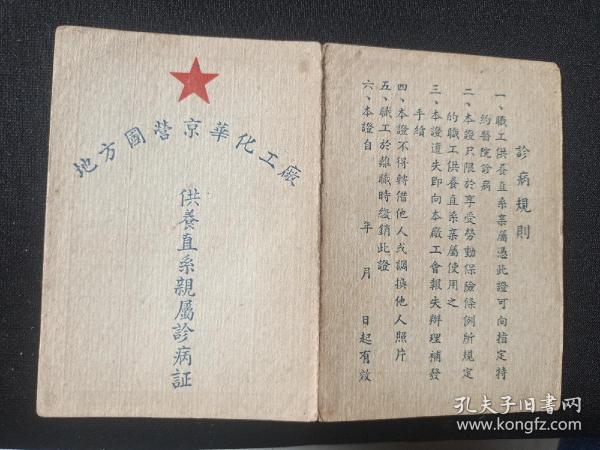 地方國营京華化工廠
供養直系親屬診病証
診病規則
一、職工供養直系親屬憑此證可向指定特
約醫院診病
二、本證只限於享受勞動保險條例所規定
的職工供養直系親屬使用之
三、本證遺失即向本廠工會報失辦理補發
手續
四、本證不得轉借他人或調換他人照片
五、職工於離職時繳銷此證
六、本證自 年 月 日起有效
孔夫子旧書网
www.kongfz.com